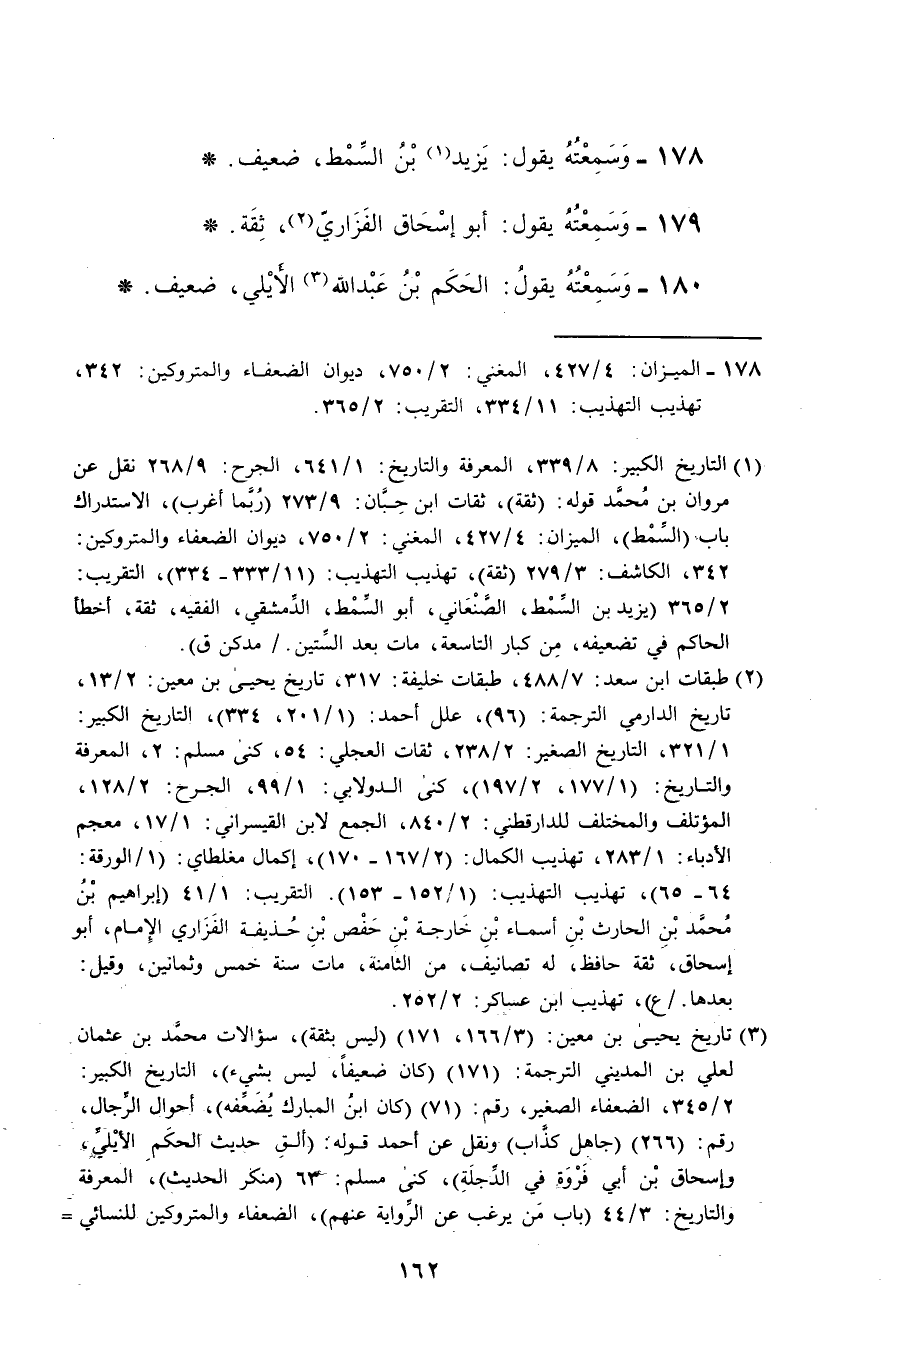 ١٧٨ - وَسَمِعْتُهُ يقول: يَزيد(١) بْنُ السِّمْط، ضعيف. *
١٧٩ - وَسَمِعْتُهُ يقول: أبو إسْحَاق الفَزَاريّ(٢)، ثِقَة. *
١٨٠ - وَسَمِعْتُهُ يقولُ: الحَكَم بْنُ عَبْدالله(٣) الأَيْلي، ضعيف. *
١٧٨ - الميزان: ٤٢٧/٤، المغني: ٧٥٠/٢، ديوان الضعفاء والمتروكين: ٣٤٢،
تهذيب التهذيب: ٣٣٤/١١، التقريب: ٣٦٥/٢.
(١) التاريخ الكبير: ٣٣٩/٨، المعرفة والتاريخ: ٦٤١/١، الجرح: ٢٦٨/٩ نقل عن
مروان بن مُحمَّد قوله: (ثقة)، ثقات ابن حِبَّان: ٢٧٣/٩ (رُبَّما أغرب)، الاستدراك
باب (السِّمْط)، الميزان: ٤٢٧/٤، المغني: ٧٥٠/٢، ديوان الضعفاء والمتروكين:
٣٤٢، الكاشف: ٢٧٩/٣ (ثقة)، تهذيب التهذيب: (٣٣٣/١١ - ٣٣٤)، التقريب:
٣٦٥/٢ (يزيد بن السِّمْط، الصَّنْعَاني، أبو السِّمْط، الدِّمشقي، الفقيه، ثقة، أخطأ
الحاكم في تضعيفه، مِن كبار التاسعة، مات بعد السِّتين. / مدكن ق).
(٢) طبقات ابن سعد: ٤٨٨/٧، طبقات خليفة: ٣١٧، تاريخ يحيىٰ بن معين: ١٣/٢،
تاريخ الدارمي الترجمة: (٩٦)، علل أحمد: (٢٠١/١، ٣٣٤)، التاريخ الكبير:
٣٢١/١، التاريخ الصغير: ٢٣٨/٢، ثقات العجلي: ٥٤، كنىٰ مسلم: ٢، المعرفة
والتاريخ: (١٧٧/١، ١٩٧/٢)، كنىٰ الدولابي: ٩٩/١، الجرح: ١٢٨/٢،
المؤتلف والمختلف للدارقطني: ٨٤٠/٢، الجمع لابن القيسراني: ١٧/١، معجم
الأدباء: ٢٨٣/١، تهذيب الكمال: (١٦٧/٢ - ١٧٠)، إكمال مغلطاي: (١/الورقة:
٦٤ - ٦٥)، تهذيب التهذيب: (١٥٢/١ - ١٥٣). التقريب: ٤١/١ (إبراهيم بْنُ
مُحمَّد بْنِ الحارث بْنِ أسماء بْنِ خَارجة بْنِ حَفْص بْنِ حُذيفة الفَزَاري الإمام، أبو
إسحاق، ثقة حافظ، له تصانيف، من الثامنة، مات سنة خمس وثمانين، وقيل:
بعدها. / ع)، تهذيب ابن عساكر: ٢٥٢/٢.
(٣) تاريخ يحيىٰ بن معين: (١٦٦/٣، ١٧١) (ليس بثقة)، سؤالات محمَّد بن عثمان
لعلي بن المديني الترجمة: (١٧١) (كان ضعيفاً، ليس بشيء)، التاريخ الكبير:
٣٤٥/٢، الضعفاء الصغير، رقم: (٧١) (كان ابنُ المبارك يُضَعِّفه)، أحوال الرِّجال،
رقم: (٢٦٦) (جاهل كذَّاب) ونقل عن أحمد قوله: (ألقِ حديث الحكَم الأيْليِّ،
وإسحاق بْن أبي فَرْوَة في الدِّجلَة)، كنىٰ مسلم: ٦٣ (منكر الحديث)، المعرفة
والتاريخ: ٤٤/٣ (باب مَن يرغب عن الرِّواية عنهم)، الضعفاء والمتروكين للنسائي =
١٦٢